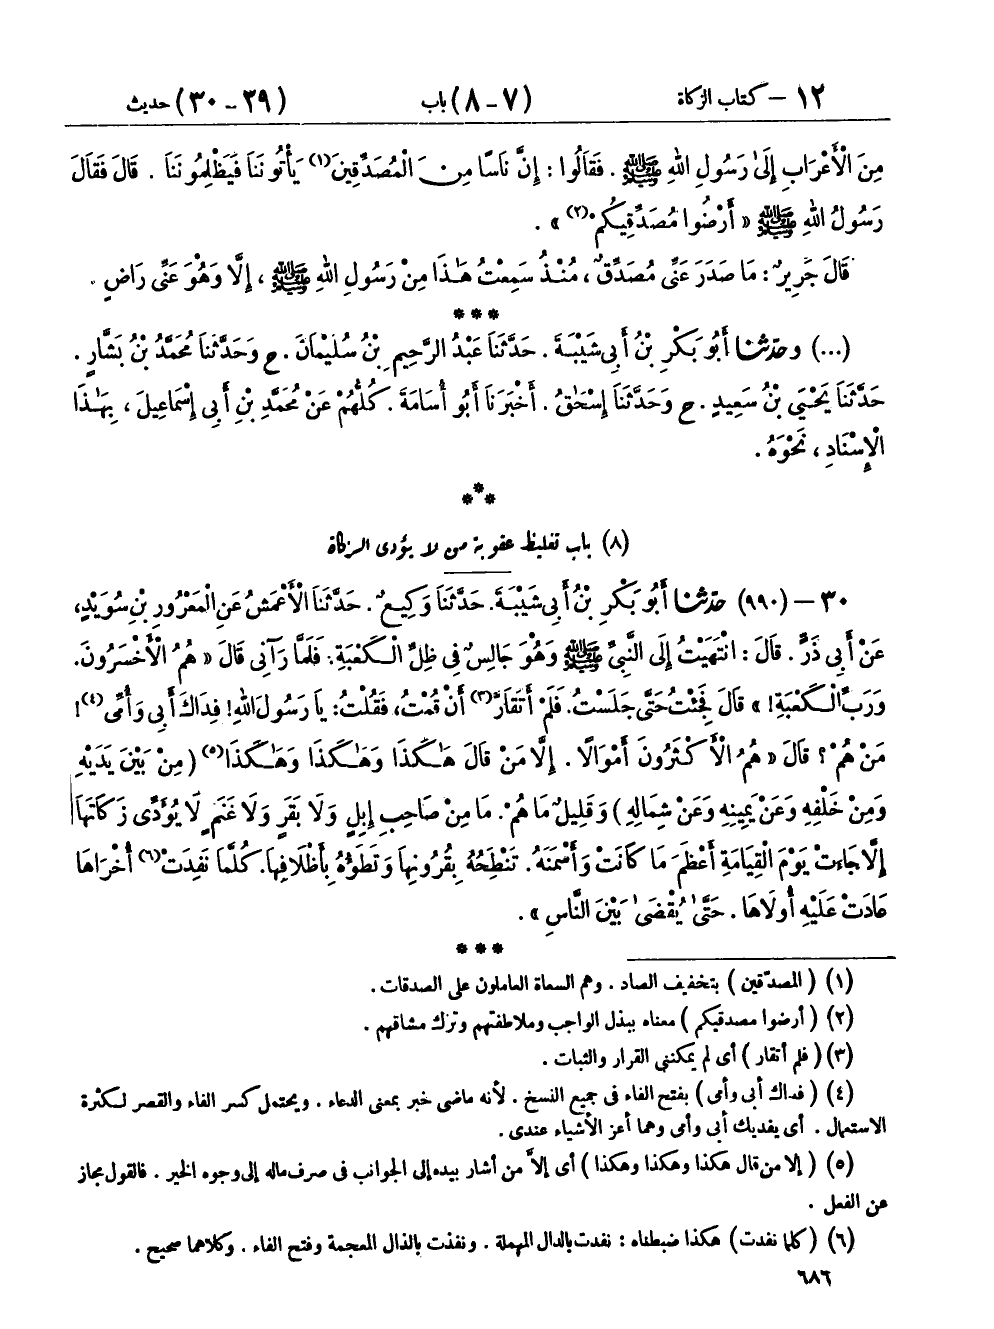 ١٢ – كتاب الزكاة (٧ – ٨) باب (٢٩ – ٣٠) حديث
مِنَ الْأَعْرَابِ إِلَىٰ رَسُولِ اللهِ ﷺ . فَقَالُوا : إِنَّ نَاسًا مِنَ الْمُصَدِّقِينَ(١) يَأْتُونَنَا فَيَظْلِمُونَنَا . قَالَ فَقَالَ
رَسُولُ اللهِ ﷺ « أَرْضُوا مُصَدِّقِيكُمْ(٢) » .
قَالَ جَرِيرٌ : مَا صَدَرَ عَنِّي مُصَدِّقٌ ، مُنْذُ سَمِعْتُ هَٰذَا مِنْ رَسُولِ اللهِ ﷺ ، إِلَّا وَهُوَ عَنِّي رَاضٍ .
* * *
(...) وحدّثنا أَبُو بَكْرِ بْنُ أَبِي شَيْبَةَ . حَدَّثَنَا عَبْدُ الرَّحِيمِ بْنُ سُلَيْمَانَ . ح وَحَدَّثَنَا مُحَمَّدُ بْنُ بَشَّارٍ .
حَدَّثَنَا يَحْيَىٰ بْنُ سَعِيدٍ . ح وَحَدَّثَنَا إِسْحَاقُ . أَخْبَرَنَا أَبُو أُسَامَةَ . كُلُّهُمْ عَنْ مُحَمَّدِ بْنِ أَبِي إِسْمَاعِيلَ ، بِهَٰذَا
الْإِسْنَادِ ، نَحْوَهُ .
* * *
(٨) باب تغليظ عقوبة من لا يؤدى الزكاة
٣٠ – (٩٩٠) حدّثنا أَبُو بَكْرِ بْنُ أَبِي شَيْبَةَ. حَدَّثَنَا وَكِيعٌ. حَدَّثَنَا الْأَعْمَشُ عَنِ الْمَعْرُورِ بْنِ سُوَيْدٍ،
عَنْ أَبِي ذَرٍّ . قَالَ : انْتَهَيْتُ إِلَى النَّبِيِّ ﷺ وَهُوَ جَالِسٌ فِي ظِلِّ الْكَعْبَةِ. فَلَمَّا رَآنِي قَالَ « هُمُ الْأَخْسَرُونَ.
وَرَبِّ الْكَعْبَةِ! » قَالَ فَجِئْتُ حَتَّى جَلَسْتُ. فَلَمْ أَتَقَارَّ(٣) أَنْ قُمْتُ، فَقُلْتُ: يَا رَسُولَ اللهِ! فَدَاكَ أَبِي وَأُمِّي(٤)!
مَنْ هُمْ ؟ قَالَ « هُمُ الْأَكْثَرُونَ أَمْوَالًا . إِلَّا مَنْ قَالَ هَٰكَذَا وَهَٰكَذَا وَهَٰكَذَا(٥) (مِنْ بَيْنِ يَدَيْهِ
وَمِنْ خَلْفِهِ وَعَنْ يَمِينِهِ وَعَنْ شِمَالِهِ ) وَقَلِيلٌ مَا هُمْ. مَا مِنْ صَاحِبِ إِبِلٍ وَلَا بَقَرٍ وَلَا غَنَمٍ لَا يُؤَدِّي زَكَاتَهَا
إِلَّا جَاءَتْ يَوْمَ الْقِيَامَةِ أَعْظَمَ مَا كَانَتْ وَأَسْمَنَهُ. تَنْطَحُهُ بِقُرُونِهَا وَتَطَؤُهُ بِأَظْلَافِهَا. كُلَّمَا نَفِدَتْ(٦) أُخْرَاهَا
عَادَتْ عَلَيْهِ أُولَاهَا . حَتَّىٰ يُقْضَىٰ بَيْنَ النَّاسِ » .
* * *
(١) ( المصدّقين ) بتخفيف الصاد . وهم السعاة العاملون على الصدقات .
(٢) ( أرضوا مصدقيكم ) معناه ببذل الواجب وملاطفتهم وترك مشاقهم .
(٣) ( فلم أتقار ) أى لم يمكنني القرار والثبات .
(٤) ( فداك أبى وأمى ) بفتح الفاء فى جميع النسخ . لأنه ماضى خبر بمعنى الدعاء . ويحتمل كسر الفاء والقصر لكثرة
الاستعمال . أى يفديك أبى وأمى وهما أعز الأشياء عندى .
(٥) ( إلا من قال هكذا وهكذا وهكذا ) أى إلاّ من أشار بيده إلى الجوانب فى صرف ماله إلى وجوه الخير . فالقول مجاز
عن الفعل .
(٦) (كلما نفدت) هكذا ضبطناه : نفدت بالدال المهملة . ونفذت بالذال المعجمة وفتح الفاء . وكلاهما صحيح .
٦٨٦